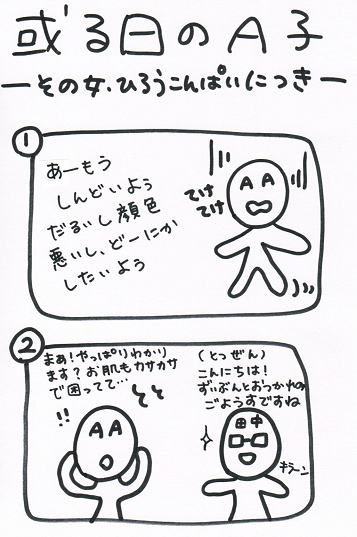 或る日のA子
ーその女・ひろうこんぱいにつきー
1
あーもう
しんどいよぅ
だるいし顔色
悪いし、どーにか
したいよう
てけ
てけ
A A
2
まぁ!やっぱりわかり
ます?お肌もカサカサ
で困ってて…
!!
A A
(とつぜん)
こんにちは!
ずいぶんとおつかれの
ごようすですね
田中
キラーン